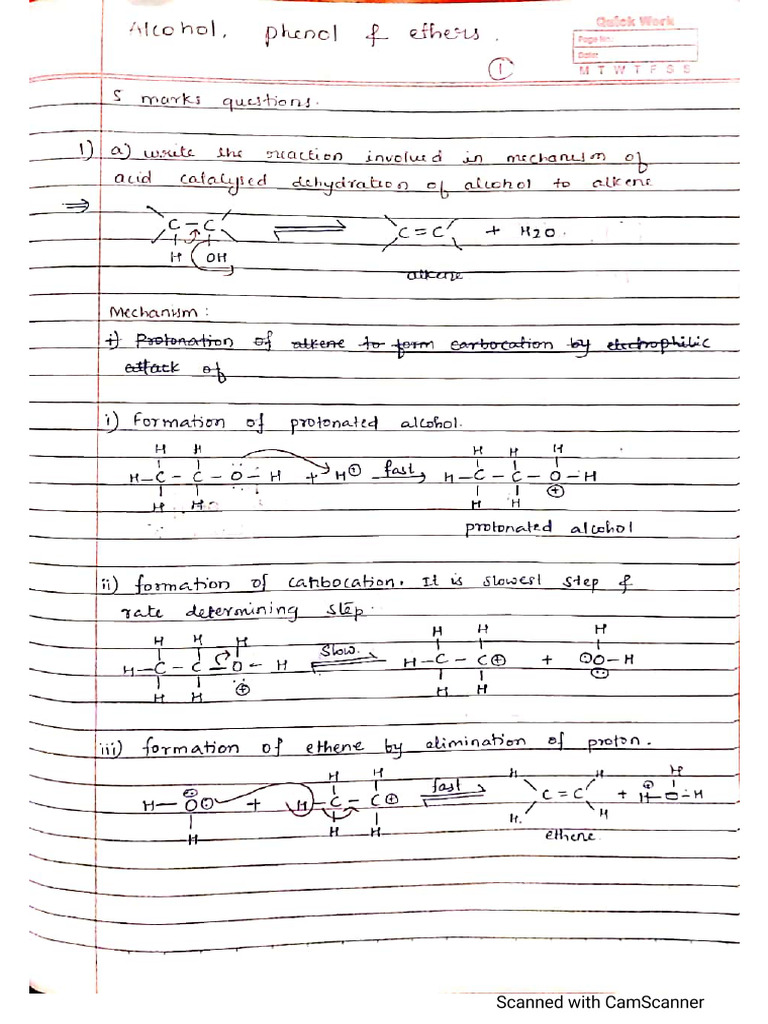 Alcohol, phenol & ethers.
Quick Work
Page No:
Date:
M T W T F S S
1
5 marks questions.
1) a) write the reaction involved in mechanism of
acid catalysed dehydration of alcohol to alkene
⇒ C – C ⇌ C = C + H2O.
H OH
alkene
Mechanism :
i) Protonation of alkene to form carbocation by electrophilic
attack of
i) Formation of protonated alcohol.
H H H H H
H – C – C – O – H + H⊕ fast → H – C – C – O – H
H H H H ⊕
protonated alcohol
ii) formation of carbocation. It is slowest step &
rate determining step.
H H H H H H
H – C – C – O – H slow. ⇌ H – C – C⊕ + O – H
H H ⊕ H H
iii) formation of ethene by elimination of proton.
H H H H H
H – O + H – C – C⊕ fast ⇌ C = C + H – O – H
H H H H. H
ethene
Scanned with CamScanner